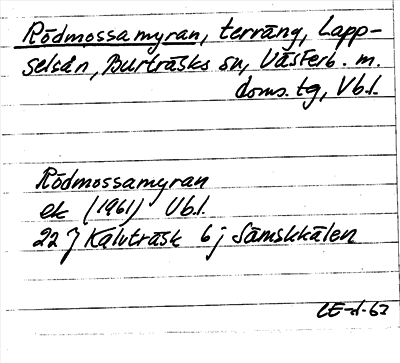 Rödmossamyran, terräng, Lapp-
selsån, Burträsks sn, Västerb. m.
doms.tg, Vb.l.
Rödmossamyran
ek (1961) Vb.l.
22 J Kalvträsk 6 j Sämskkälen
LE-d-62